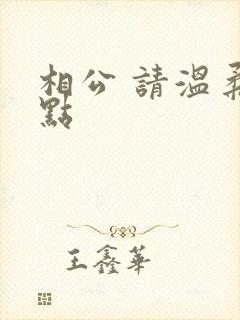 相公 請溫柔
點
王鑫華